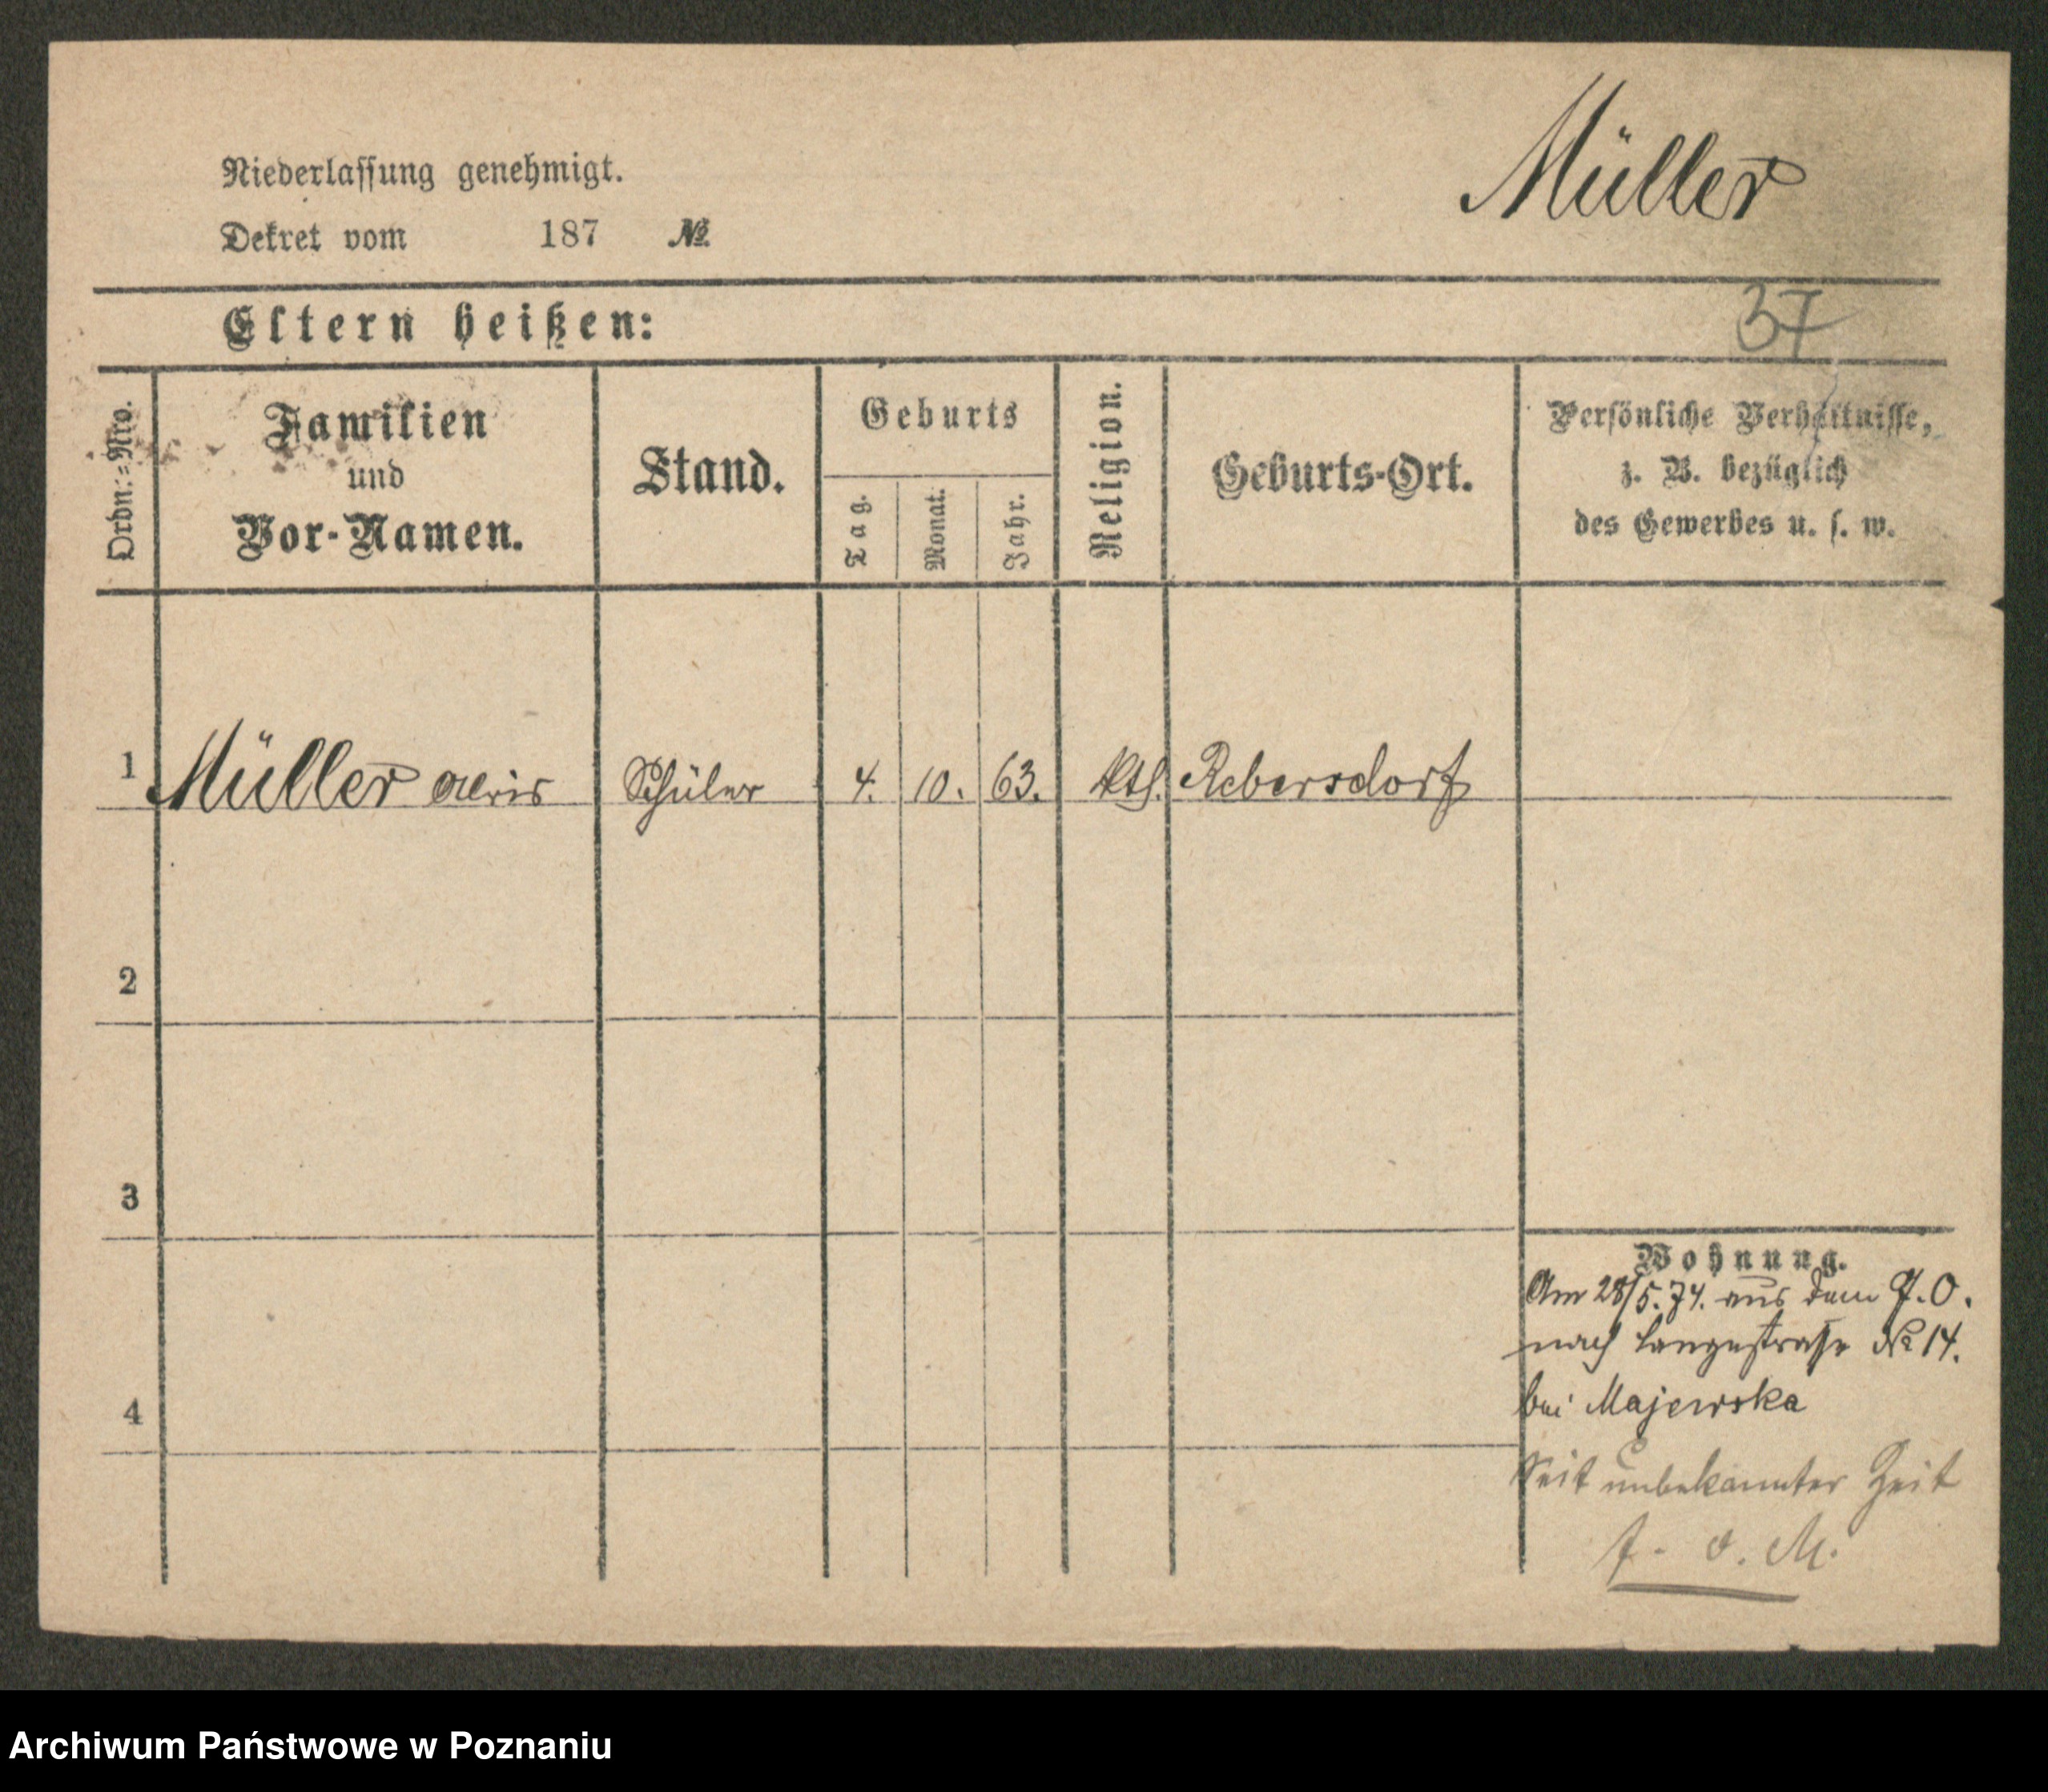 Müller
Niederlassung genehmigt.
Dekret vom 187 №
Eltern heißen:
37
Ordn.=Nro.
Familien
und
Vor-Namen.
Stand.
Geburts
Tag.
Monat.
Jahr.
Religion.
Geburts-Ort.
Persönliche Verhältnisse,
z. B. bezüglich
des Gewerbes u. s. w.
1 Müller Schüler 4. 10. 63. kth. Rebersdorf
2
3
4
Wohnung.
Am 28/5.74. aus dem J. O.
nach Langestrasse № 14.
bei Majewska
Seit unbekannter Zeit
f. o. M.
Archiwum Państwowe w Poznaniu